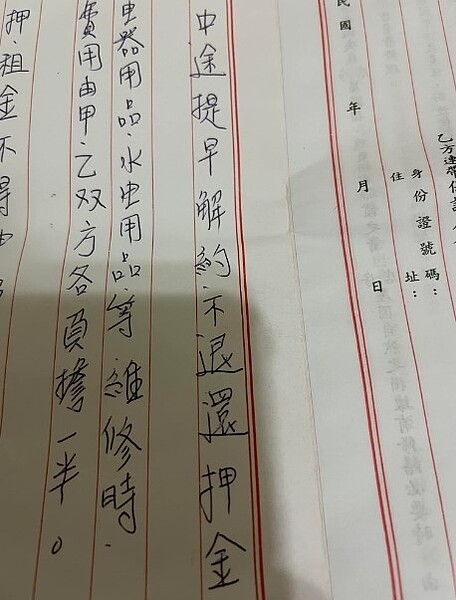 乙方連帶保證人
身份證號碼：
住址：
民國年月日
中途提早解約不退還押金
电器用品.水电用品等維修時.
費用由甲.乙双方各負擔一半。
押.租金不得由